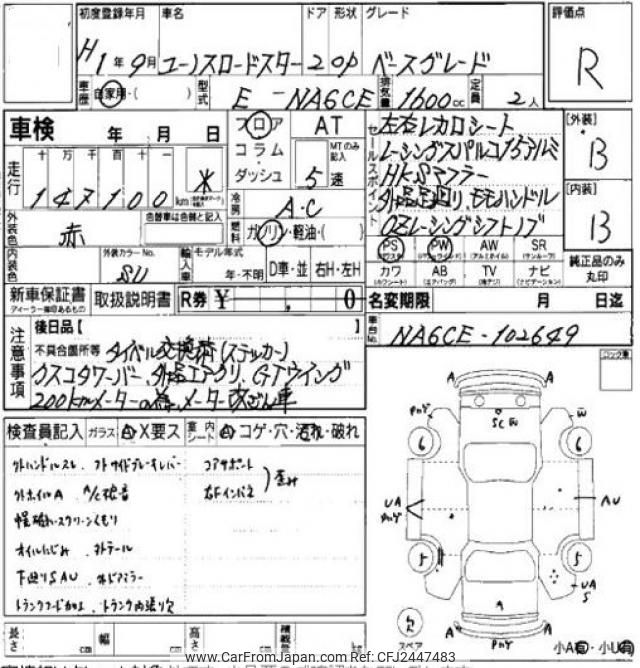 初度登録年月 車名 ドア 形状 グレード 評価点
H1年9月 ユーノスロードスター 2 OP ベースグレード R
車歴 自家用・( ) 型式 E-NA6CE 排気量 1600cc 定員 2人
車検 年 月 日 フロア AT セールスポイント 左右レカロシート [外装]
走行 十 万 千 百 十 一 コラム MTのみ記入 レーシングスパルコ15アルミ B
147100km * ダッシュ 5速 HKSマフラー
冷房 A・C 外品足廻り、モモハンドル [内装]
外装色 赤 色替車は色替と記入 燃料 ガソリン・軽油・( ) OZレーシングシフトノブ B
内装色 外装カラーNo. SU 輸入車 モデル年式 年・不明 D車・並 右H・左H
PS (パワステ) PW (パワーウィンドウ) AW (アルミホイル) SR (サンルーフ) 純正品のみ丸印
カワ (カワシート) AB (エアバッグ) TV (純テレビ) ナビ (ナビゲーション)
新車保証書 ディーラー印あるもの 取扱説明書 R券 ¥ , 0 名変期限 月 日迄
注意事項 後日品【 】 車台No. NA6CE-102649
不具合箇所等 タイベル交換済(ステッカー)
カスコタワーバー、外品エアクリ、GTウイング
200kmメーターの為、メーター改ざん車
検査員記入 ガラス A X要ス 室内シート A コゲ・穴・汚れ・破れ
外ハンドルスレ コアサポート
外ホイルA A/C 右Fインパネ 歪み
スクリーンくもり
オイルにじみ 外テール
下廻りSAU
トランクフード トランク内張り欠
ロック車
A A A
SC
W
6 6
UA
AU
5 5
UA
S
A
A A
スペア
小A有・小U有
長さ cm 幅 cm 高さ cm 積載量
www.CarFromJapan.com Ref: CFJ2447483